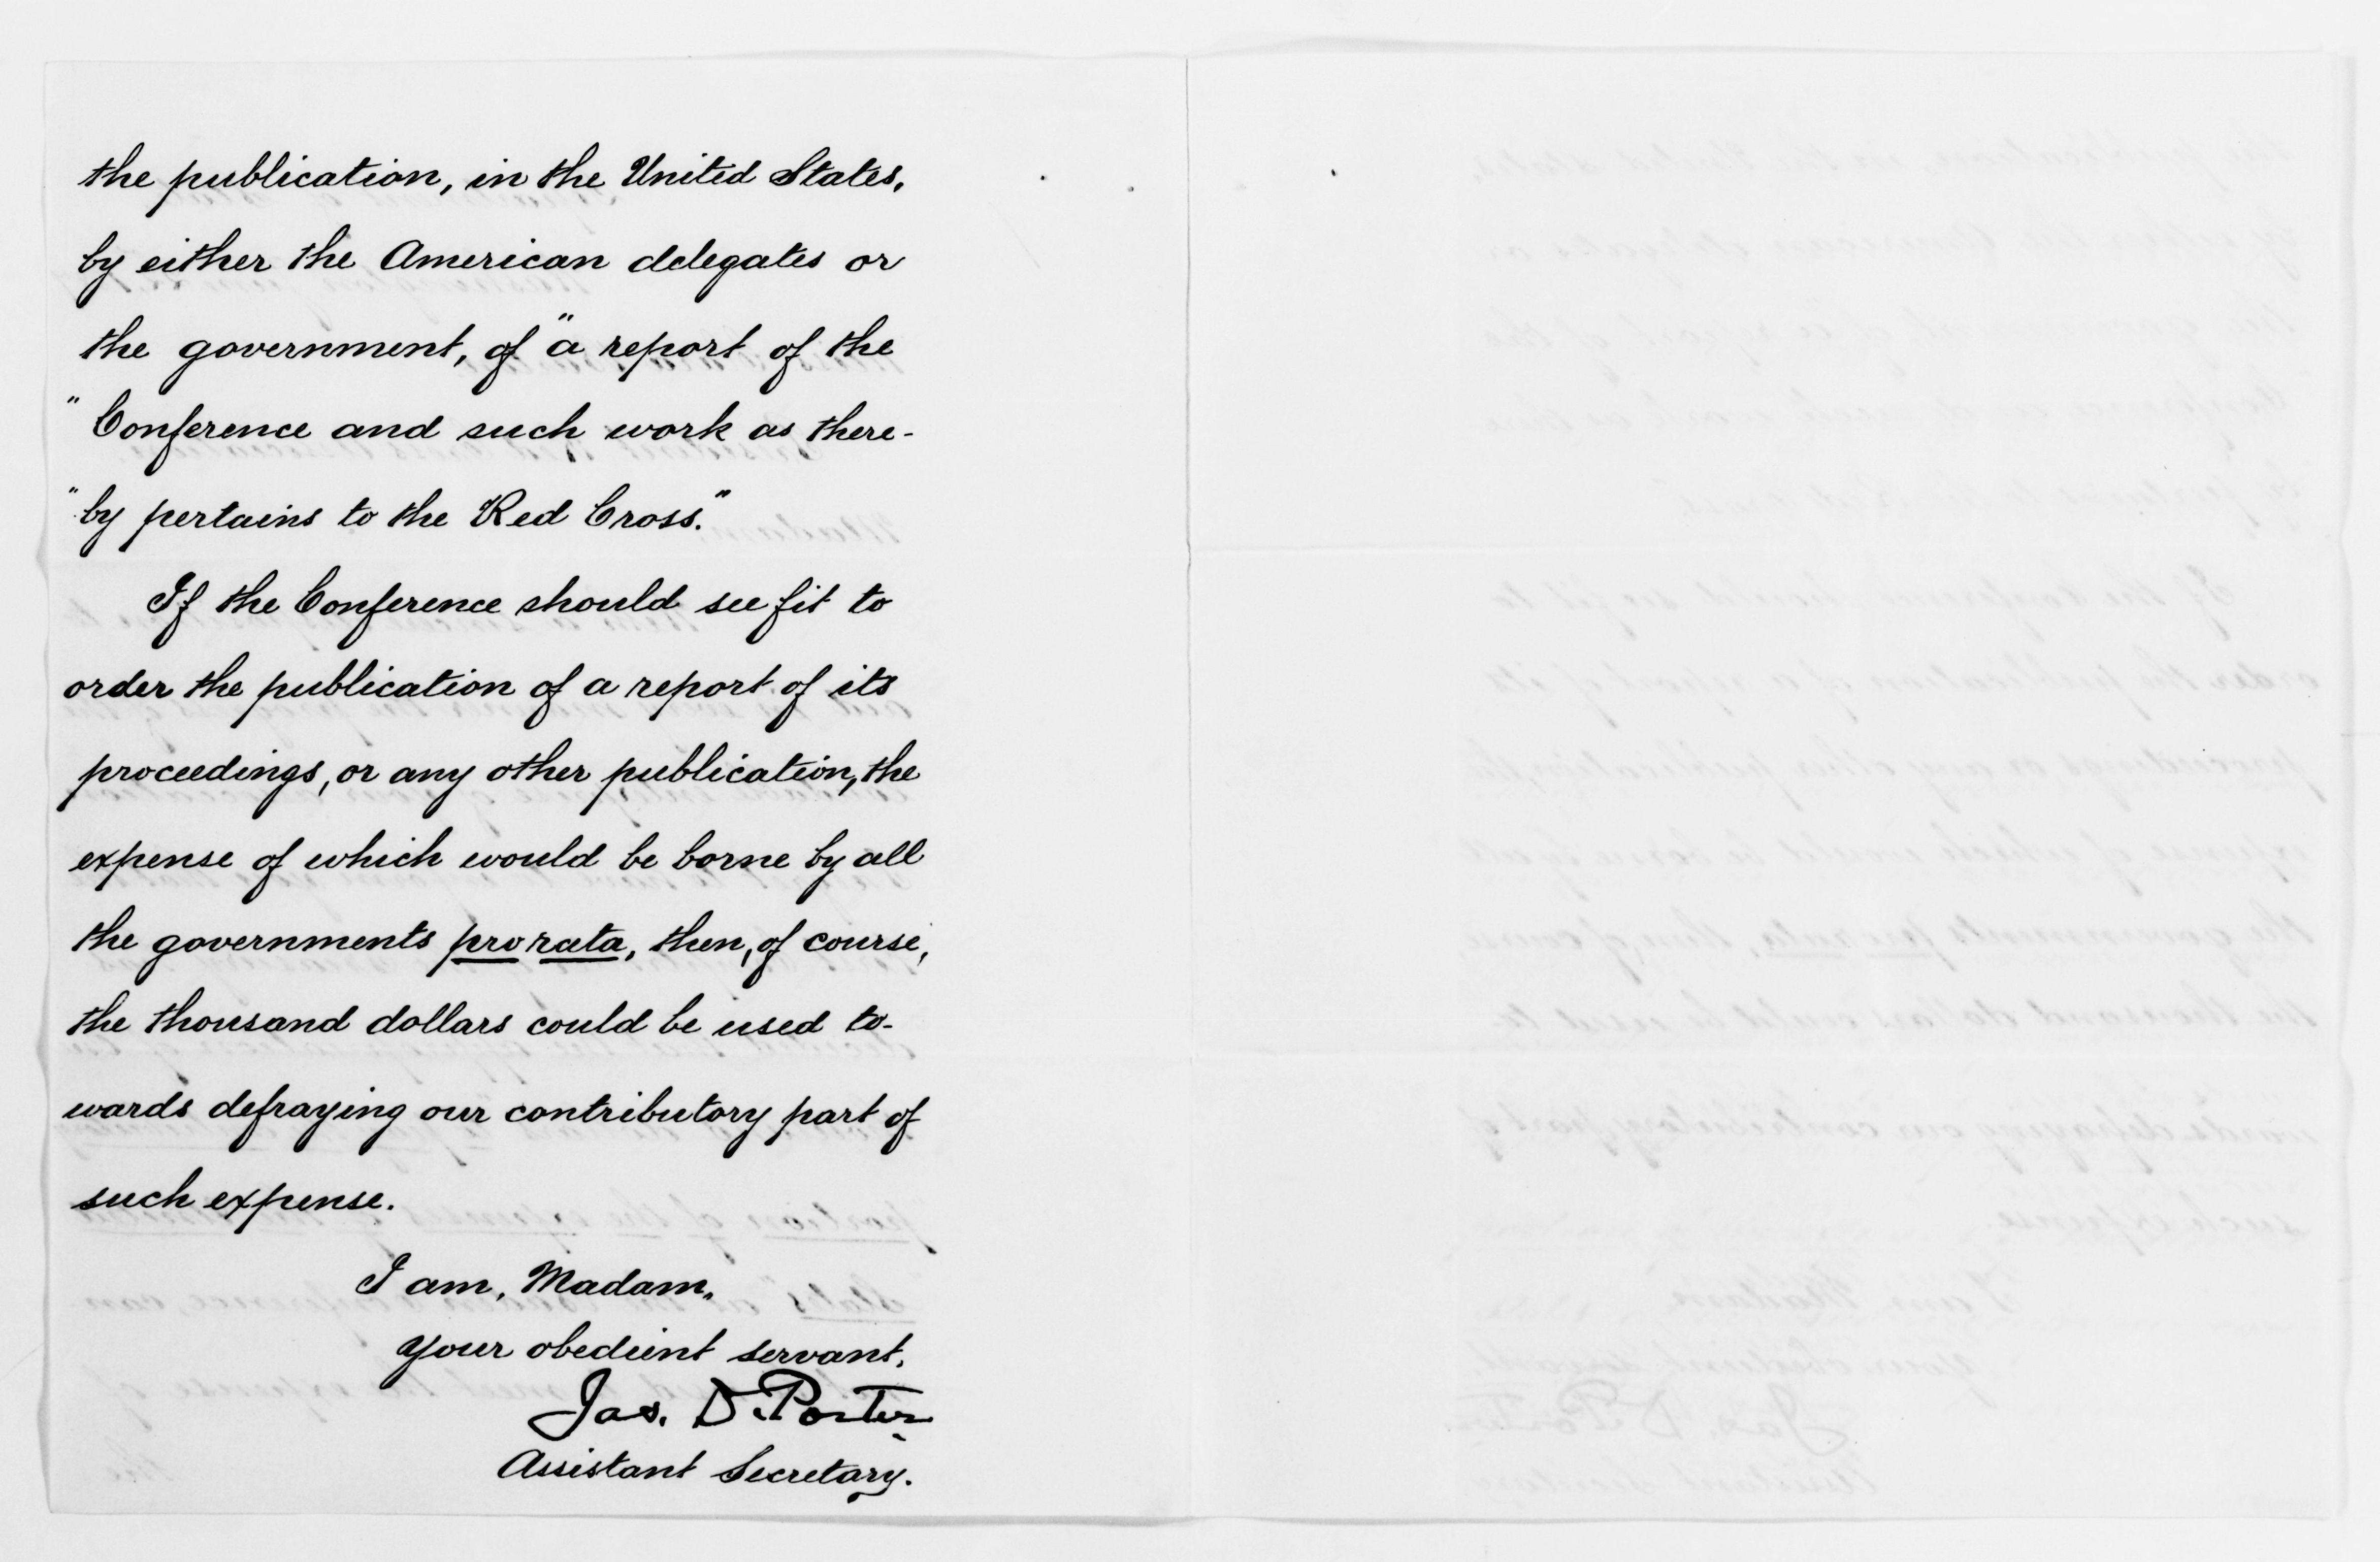 the publication, in the United States,
by either the American delegates or
the government, of "a report of the
"Conference and such work as there-
"by pertains to the Red Cross."
If the Conference should see fit to
order the publication of a report of its
proceedings, or any other publication, the
expense of which would be borne by all
the governments pro rata, then, of course,
the thousand dollars could be used to-
wards defraying our contributory part of
such expense.
I am, Madam,
Your obedient servant,
Jas. D. Porter
Assistant Secretary.